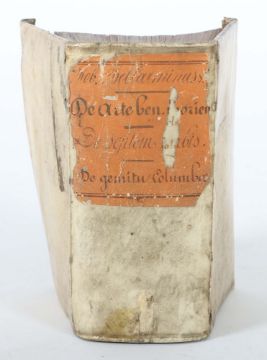 Rob. Bellarminus S
De Arte ben. moriend
De septem verbis.
De gemitu Columbæ